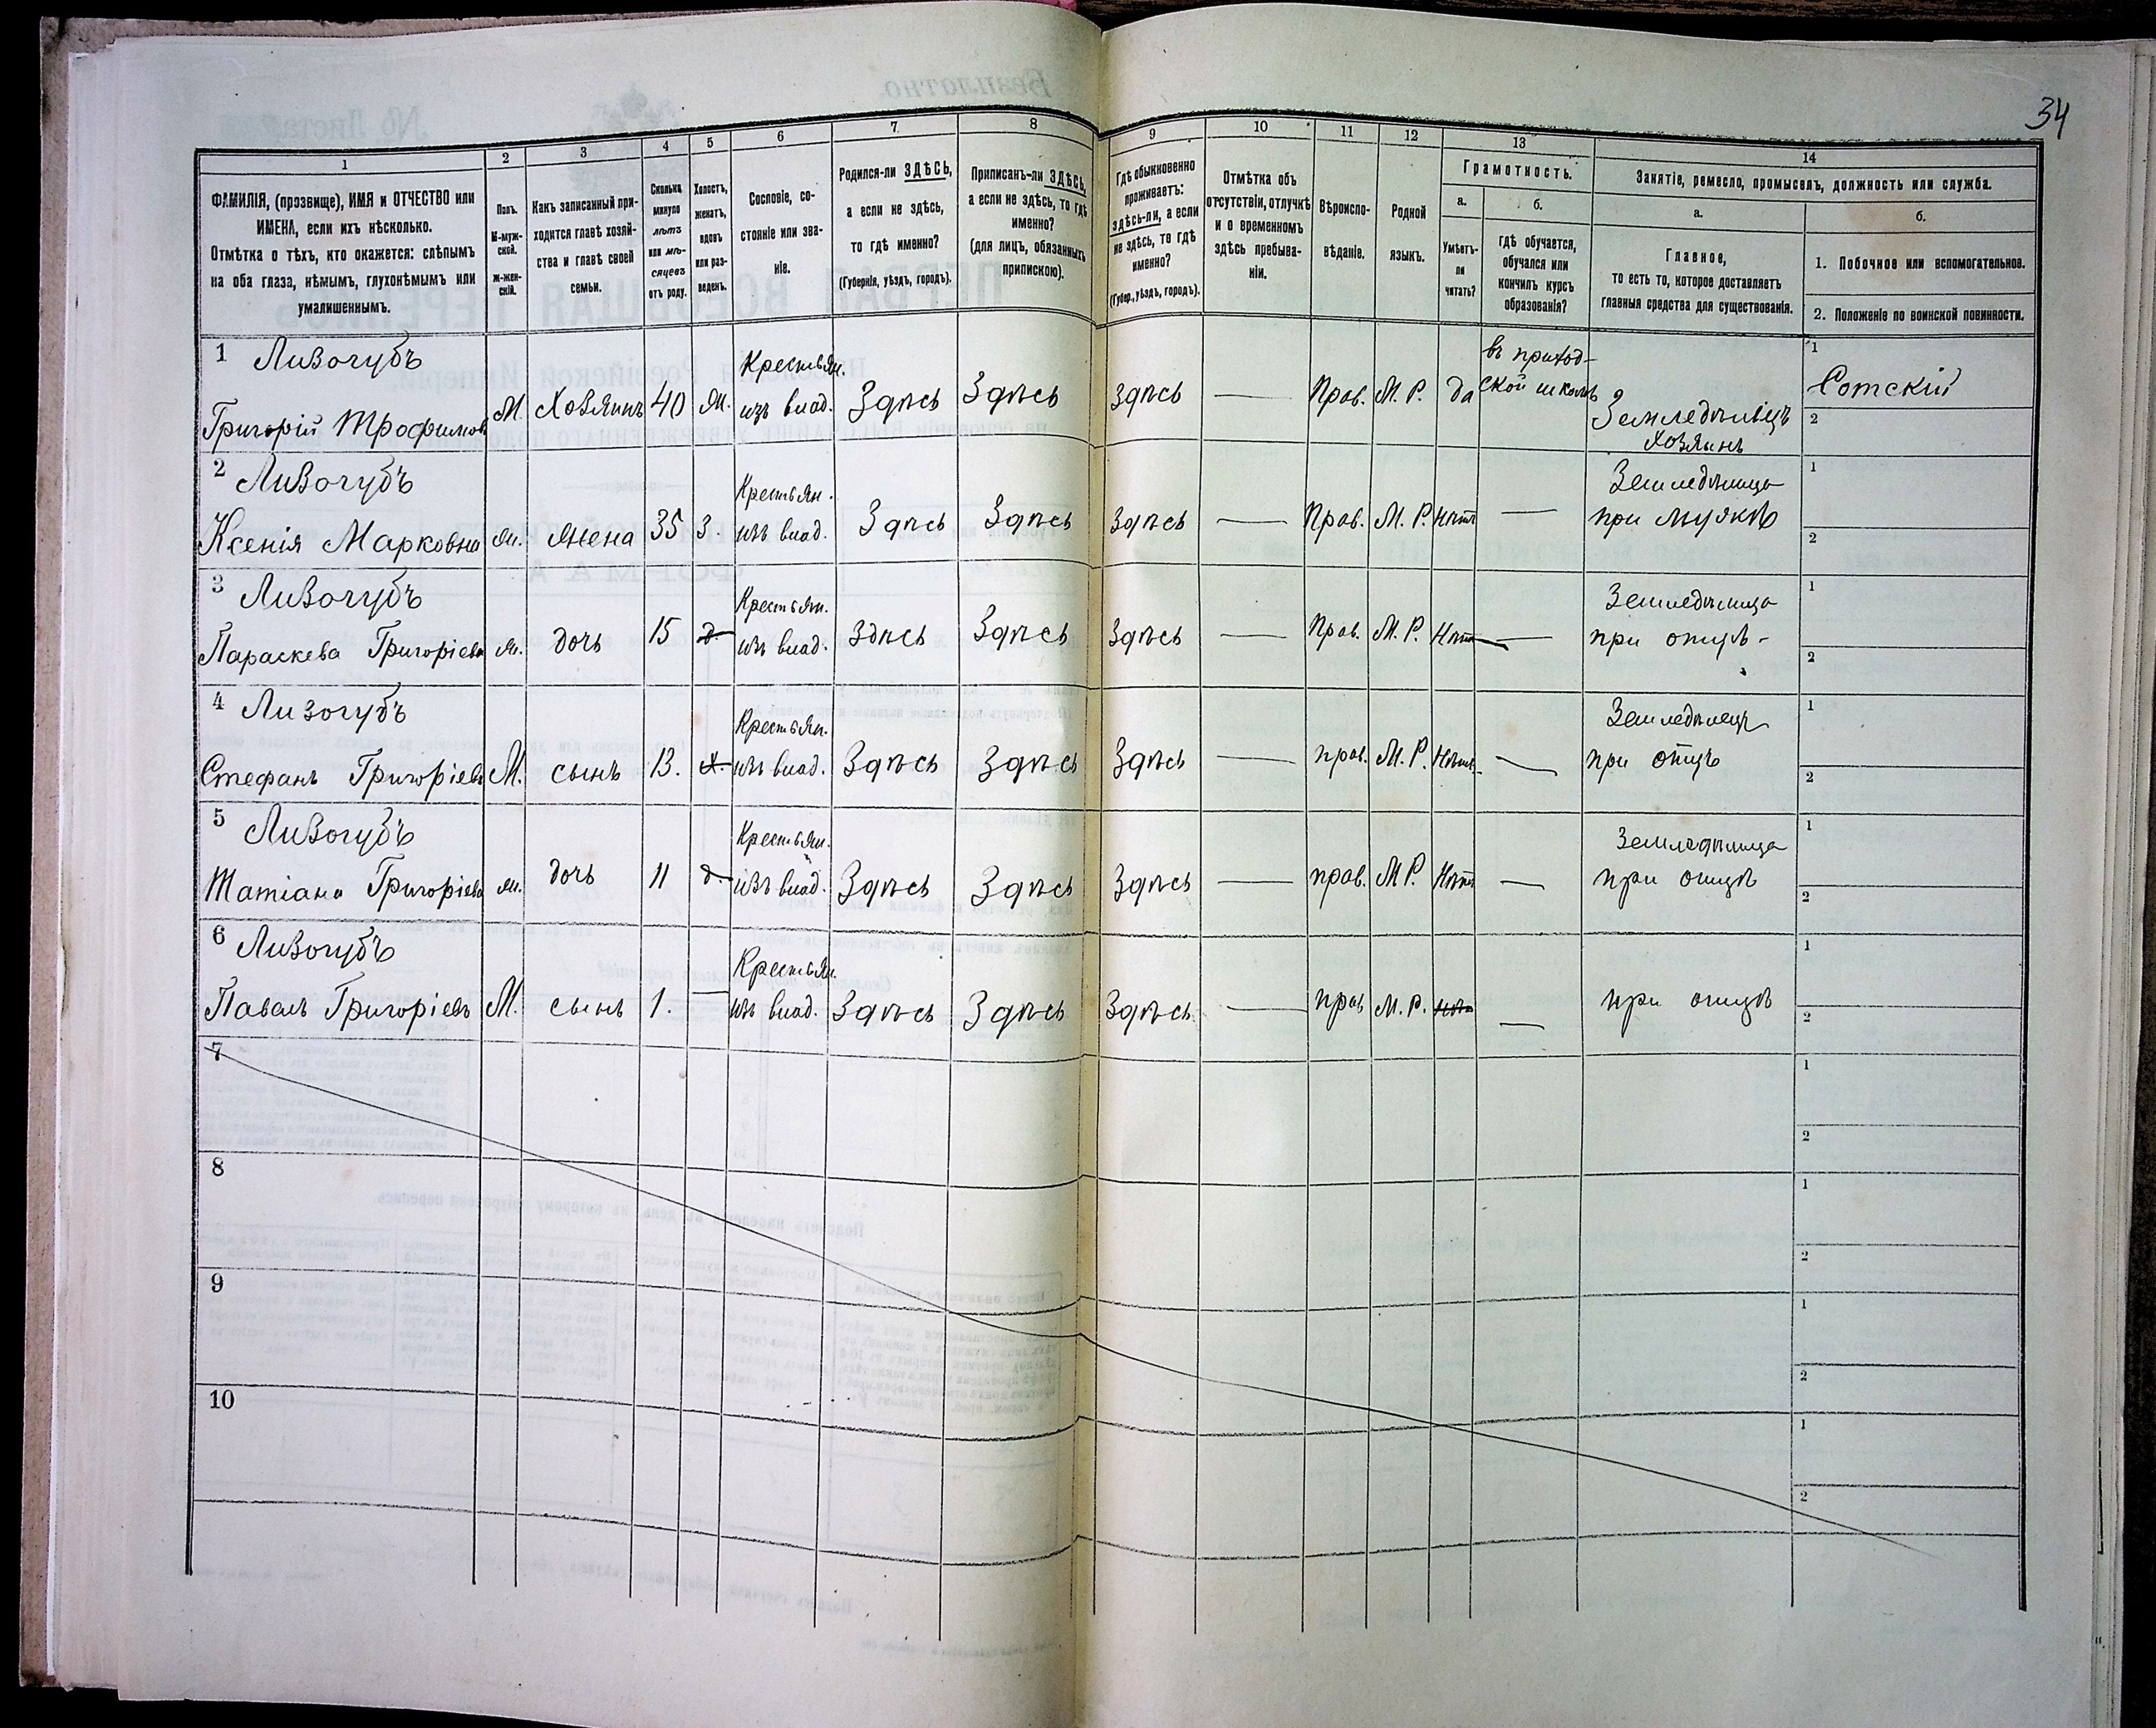 34
1
2
3
4
5
6
7
8
9
10
11
12
13
14
ФАМИЛІЯ, (прозвище), ИМЯ и ОТЧЕСТВО или
ИМЕНА, если ихъ нѣсколько.
Отмѣтка о тѣхъ, кто окажется: слѣпымъ
на оба глаза, нѣмымъ, глухонѣмымъ или
умалишеннымъ.
Полъ.
М-муж-
ской.
Ж-жен-
скій.
Какъ записанный при-
ходится главѣ хозяй-
ства и главѣ своей
семьи.
Сколько
минуло
лѣтъ
или мѣ-
сяцевъ
отъ роду.
Холостъ,
женатъ,
вдовъ
или раз-
веденъ.
Сословіе, со-
стояніе или зва-
ніе.
Родился-ли ЗДѢСЬ,
а если не здѣсь,
то гдѣ именно?
(Губернія, уѣздъ, городъ).
Приписанъ-ли ЗДѢСЬ,
а если не здѣсь, то гдѣ
именно?
(для лицъ, обязанныхъ
припискою).
Гдѣ обыкновенно
проживаетъ:
здѣсь-ли, а если
не здѣсь, то гдѣ
именно?
(Губер., уѣздъ, городъ).
Отмѣтка объ
отсутствіи, отлучкѣ
и о временномъ
здѣсь пребыва-
ніи.
Вѣроиспо-
вѣданіе.
Родной
языкъ.
Грамотность.
а.
Умѣетъ-
ли
читать?
б.
гдѣ обучается,
обучался или
кончилъ курсъ
образованія?
Занятіе, ремесло, промыселъ, должность или служба.
а.
Главное,
то есть то, которое доставляетъ
главныя средства для существованія.
б.
1. Побочное или вспомогательное.
2. Положеніе по воинской повинности.
1 Лизогубъ
Григорій Трофимов
М.
Хозяинъ
40
Ж.
Крестьян.
изъ влад.
Здѣсь
Здѣсь
Здѣсь
—
Прав.
М. Р.
да
въ приход-
ской школѣ
Земледѣлецъ
хозяинъ
1
Сотскій
2
2 Лизогубъ
Ксенія Марковна
ж.
жена
35
З.
Крестьян.
изъ влад.
Здѣсь
Здѣсь
Здѣсь
—
Прав.
М. Р.
Нѣтъ
—
Земледѣлица
при мужѣ
1
2
3 Лизогубъ
Параскева Григоріева
ж.
дочь
15
д.
Крестьян.
изъ влад.
Здѣсь
Здѣсь
Здѣсь
—
Прав.
М. Р.
Нѣтъ
—
Земледѣлица
при отцѣ-
1
2
4 Лизогубъ
Стефанъ Григоріевъ
М.
сынъ
13.
х.
Крестьян.
изъ влад.
Здѣсь
Здѣсь
Здѣсь
—
прав.
М. Р.
Нѣтъ
—
Земледѣлецъ
при отцѣ
1
2
5 Лизогубъ
Татіана Григоріева
ж.
дочь
11
д.
Крестьян.
изъ влад.
Здѣсь
Здѣсь
Здѣсь
—
прав.
М Р.
Нѣтъ
—
Земледѣлица
при отцѣ
1
2
6 Лизогубъ
Павелъ Григоріевъ
М.
сынъ
1.
—
Крестьян.
изъ влад.
Здѣсь
Здѣсь
Здѣсь
—
прав
М. Р.
нѣтъ
—
при отцѣ
1
2
7
1
2
8
1
2
9
1
2
10
1
2